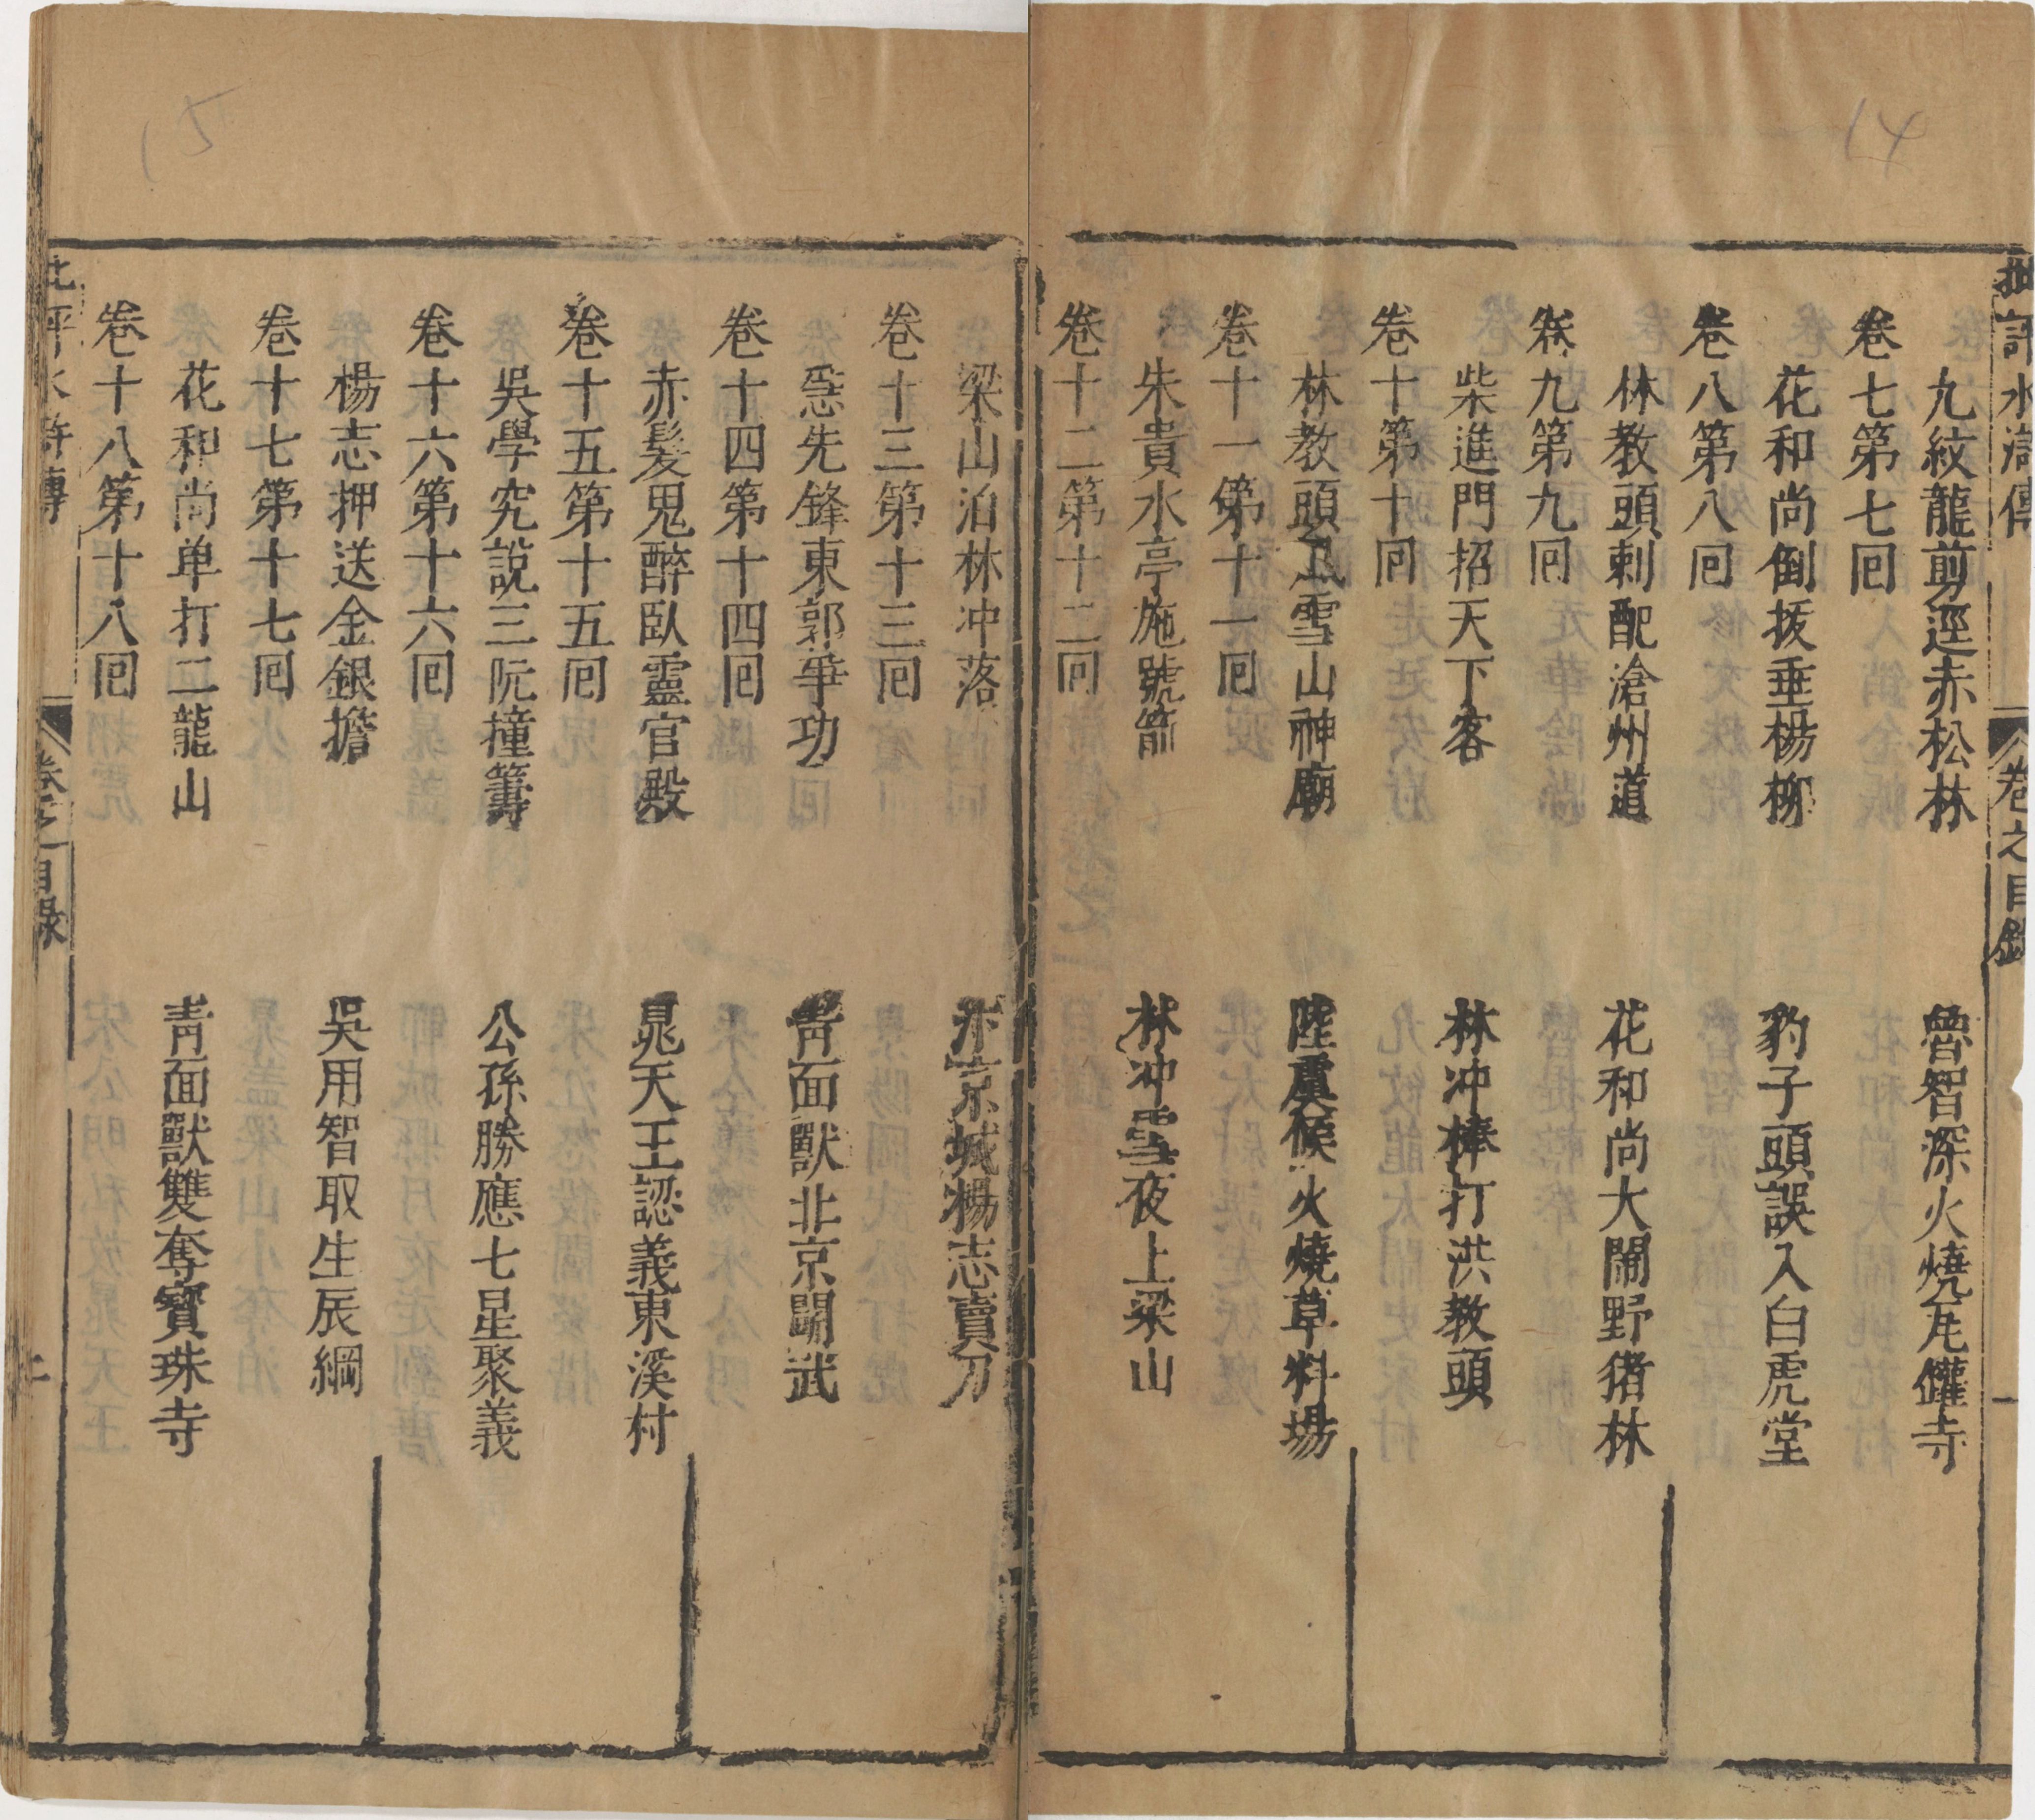 14
批評水滸傳 卷之目錄
九紋龍剪逕赤松林 魯智深火燒瓦鑵寺
卷七第七囘
花和尚倒拔垂楊柳 豹子頭誤入白虎堂
卷八第八囘
林教頭刺配滄州道 花和尚大鬧野猪林
卷九第九囘
柴進門招天下客 林冲棒打洪教頭
卷十第十囘
林教頭風雪山神廟 陸虞候火燒草料場
卷十一第十一囘
朱貴水亭施號箭 林冲雪夜上梁山
卷十二第十二囘
15
梁山泊林冲落 汴京城楊志賣刀
卷十三第十三囘
急先鋒東郭爭功 靑面獸北京鬪武
卷十四第十四囘
赤髮鬼醉臥靈官殿 晁天王認義東溪村
卷十五第十五囘
吳學究說三阮撞籌 公孫勝應七星聚義
卷十六第十六囘
楊志押送金銀擔 吳用智取生辰綱
卷十七第十七囘
花和尚单打二龍山 靑面獸雙奪寳珠寺
卷十八第十八囘
批評水滸傳 卷之目錄